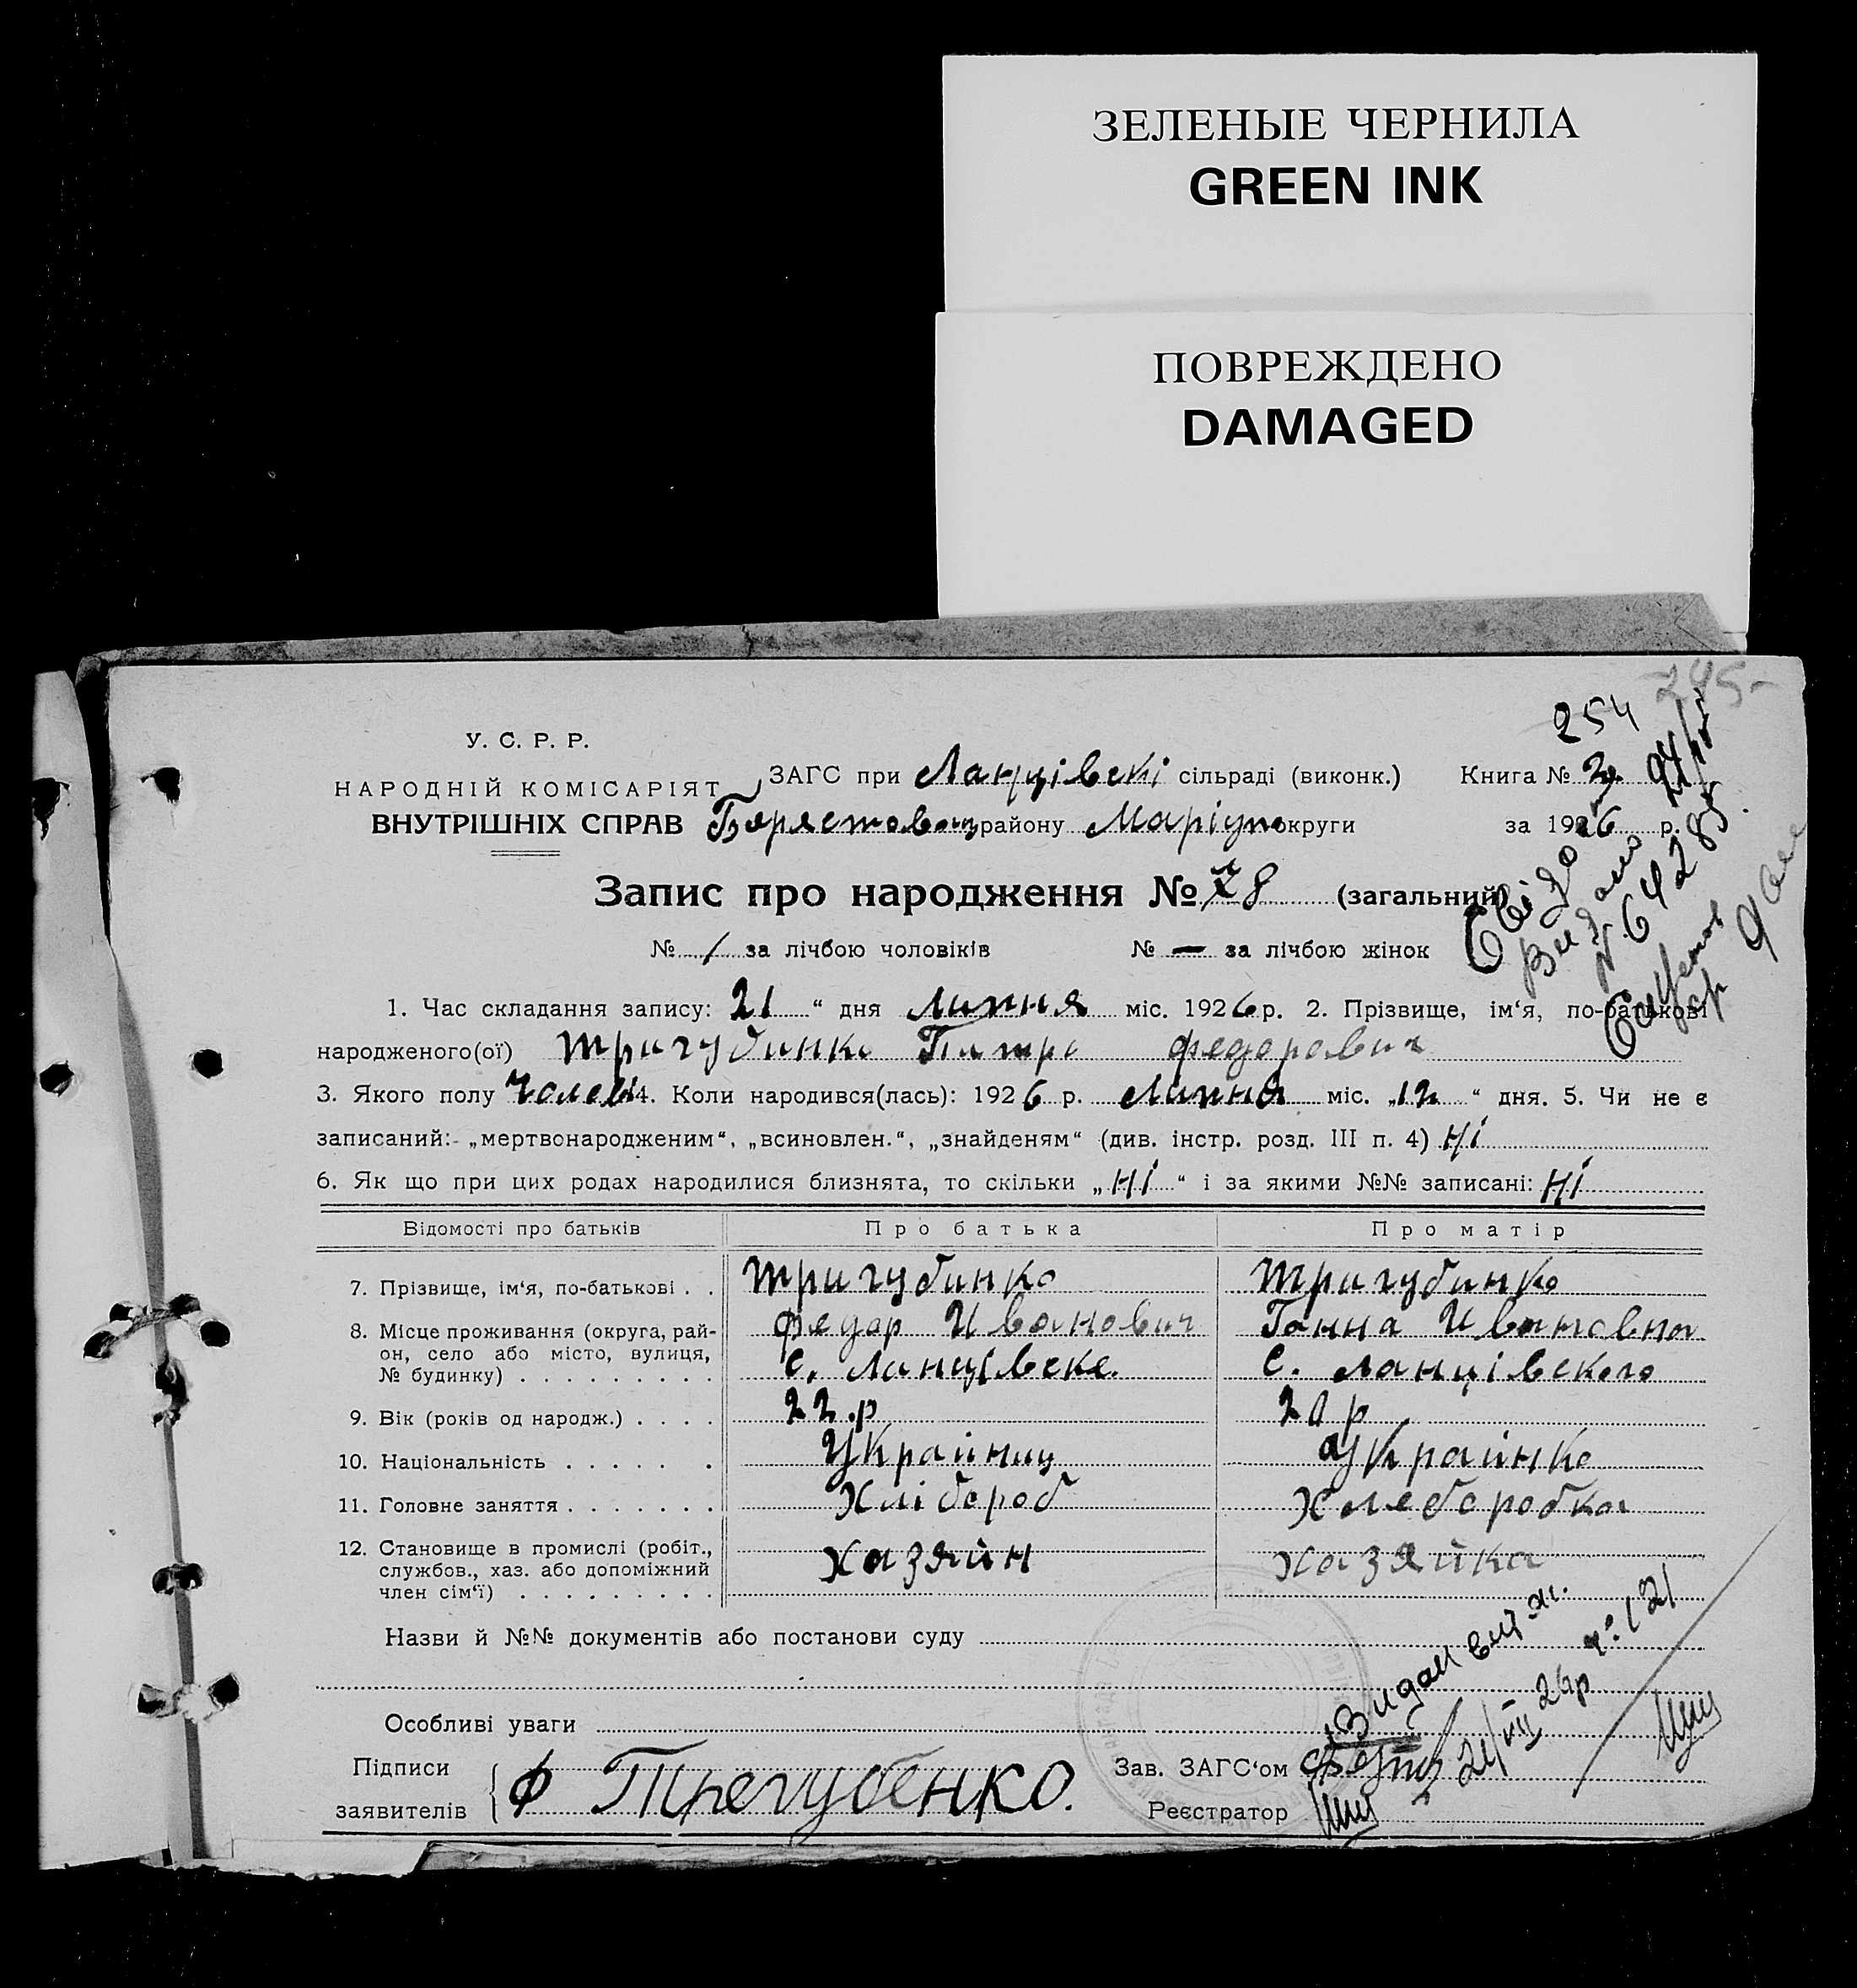 ЗЕЛЕНЫЕ ЧЕРНИЛА
GREEN INK
ПОВРЕЖДЕНО
DAMAGED
245-
254
У. С. Р. Р.
НАРОДНІЙ КОМІСАРІЯТ
ВНУТРІШНІХ СПРАВ
ЗАГС при Ланцівскі сільраді (виконк.) Книга №
району Маріуп округи за 1926 р.
Запис про народження № 8 (загальний)
№ 1 за лічбою чоловіків № — за лічбою жінок
1. Час складання запису: 21 “ дня Липня міс. 1926 р. 2. Прізвище, ім‘я, по-батькові
народженого(ої) Тригубинко Питро Федоравич
3. Якого полу Чолов 4. Коли народився(лась): 1926 р. Липня міс. „12 “ дня. 5. Чи не є
записаний: „мертвонародженим“, „всиновлен.“, „знайденям“ (див. інстр. розд. III п. 4) Ні
6. Як що при цих родах народилися близнята, то скільки „Ні“ і за якими №№ записані: Ні
Відомості про батьків Про батька Про матір
7. Прізвище, ім‘я, по-батькові . . Тригубинко Тригубинко
Федор Иванович Ганна Ивановна
8. Місце проживання (округа, рай-
он, село або місто, вулиця,
№ будинку) с. Ланцівске. с. Ланцівского
9. Вік (років од народж.) 22.р 20 р
10. Національність Украйниц Украйнка
11. Головне заняття Хлібороб Хлеборобка
12. Становище в промислі (робіт.,
службов., хаз. або допоміжний
член сім‘ї) Хазяйн Хазяйка
Назви й №№ документів або постанови суду
Видан витяг.
21/VII 26р №121
Особливі уваги
Підписи
заявителів Ф Трегубенко.
Зав. ЗАГС‘ом
Реєстратор
Свідо
Видано
№ 64283